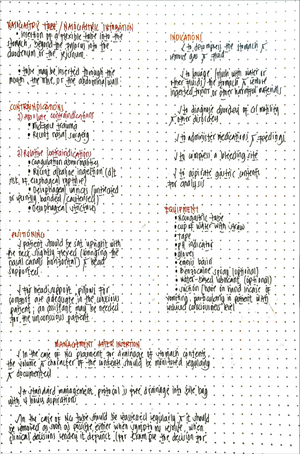 NASOGASTRIC TUBE / NASOGASTRIC INTUBATION
• insertion of a flexible tube into the
stomach, beyond the pylorus into the
duodenum or the jejunum.
• tube may be inserted through the
mouth, the nose, or the abdominal wall.
CONTRAINDICATIONS
1) absolute contraindications
• multiple trauma
• Recent nasal surgery
2) Relative contraindications
• coagulation abnormalities
• Recent alkaline ingestion (d/t
risk of esophageal rupture)
• Oesophageal varices (untreated
or recently banded / cauterised)
• Oesophageal strictures
POSITIONING
patient should be sat upright with
the neck slightly flexed (bringing the
nasal canals horizontal) & head
supported
the head support, pillows for
comfort are adequate in the conscious
patient; an assistant may be needed
for the unconscious patient
INDICATIONS
to decompress the stomach &
remove gas & fluid
to lavage (flush with water or
other fluids) the stomach & remove
ingested toxins or other harmful materials
to diagnose disorders of GI motility
& other disorders
to administer medications & feedings
to compress a bleeding site
to aspirate gastric contents
for analysis
EQUIPMENT
• Nasogastric tube
• cup of water with straw
• tape
• pH indicator
• gloves
• emesis basin
• spray (optional)
• water-based lubricant (optional)
• suction (have on hand incase of
vomiting, particularly in patients with
reduced consciousness level
MANAGEMENT AFTER INSERTION
In the case of NG placement for drainage of stomach contents,
the volume & character of the contents should be monitored regularly
& documented
Standard management protocol is free drainage into bag
with 4 hourly aspirations
In the case of NG tube should be regularly & it should
be removed as soon as possible either when symptoms resolve, when
clinical decisions render it defunct (for example the decision for